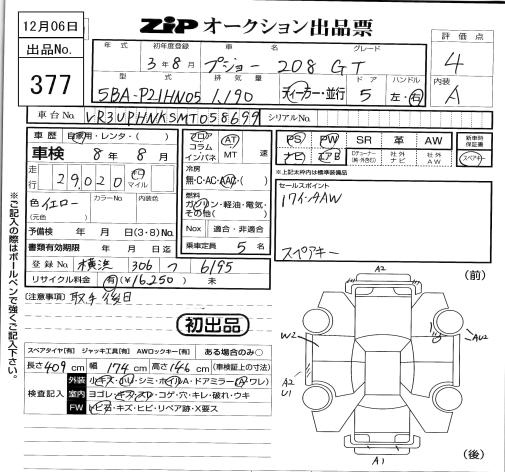 12月06日
ZIP オークション出品票
出品No.
377
年式 初年度登録 車名 グレード
3年8月 プジョー 208 GT
型式 排気量 ドア ハンドル
5BA-P21HN05 1,190 ディーラー・並行 5 左・右
評価点
4
内装
A
車台No. VR3UPHNKSMT058699 シリアルNo.
車歴 自家用・レンタ・( )
車検 8年8月
走行 29,020 キロ マイル
色 イエロー カラーNo. 内装色
(元色)
予備検 年 月 日(3・8)No.
書類有効期限 年 月 日迄
登録No. 横浜 306 つ 6195
リサイクル料金 有(¥16,250) 未
フロア コラム インパネ
AT MT 速
冷房
無・C・AC・AAC・( )
燃料
ガソリン・軽油・電気・
その他( )
Nox 適合・非適合
乗車定員 5 名
PS PW SR 革 AW
ナビ エアB Dチューナー(純・外含む) 社外ナビ 社外AW
新車時保証書
スペアキー
※上記太枠内は標準装備品
セールスポイント
17インチAW
スペアキー
[注意事項] 取手後日
初出品
スペアタイヤ[有] ジャッキ工具[有] AWロックキー[有] ある場合のみ○
長さ409cm 幅174cm 高さ146cm (車検証上の寸法)
検査記入
外装 小キズ・凹リ・シミ・ホイルA・ドアミラー(A・ワレ)
室内 ヨゴレ・キズ・スレ・コゲ・穴・キレ・破れ・ウキ
FW トビ石・キズ・ヒビ・リペア跡・X要ス
※ご記入の際はボールペンで強くご記入下さい。
(前)
A2
W2
AW2
A2
U1
A1
(後)